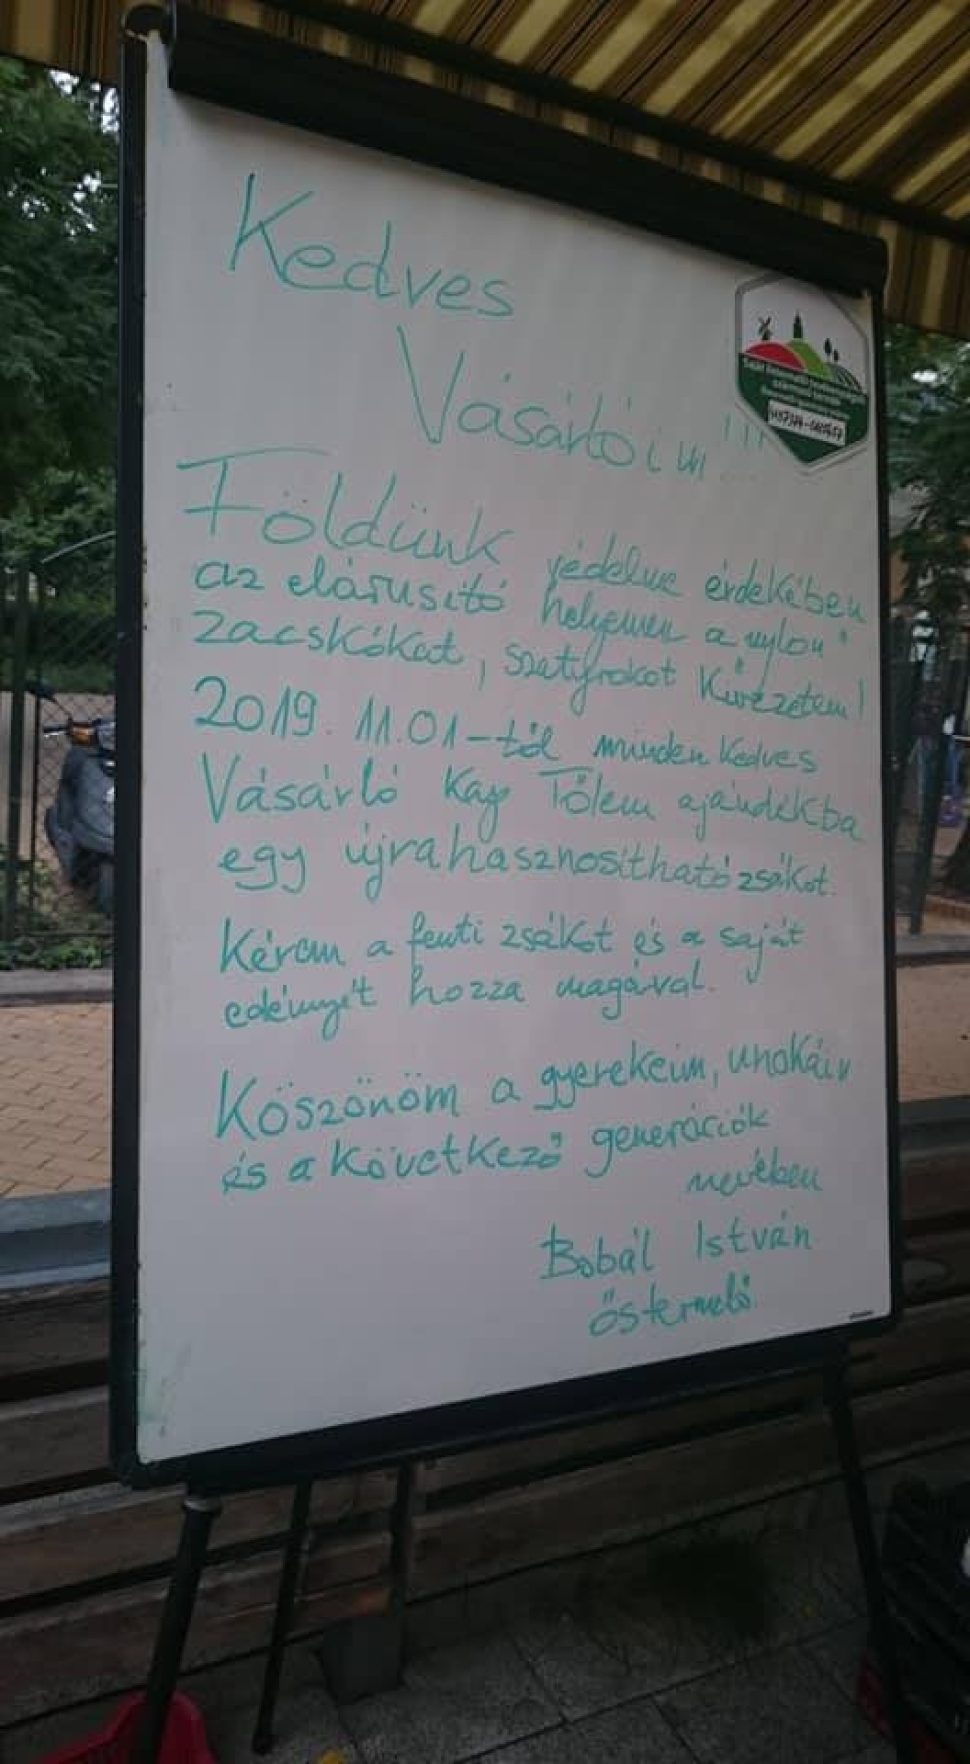 Kedves
Vásárlóim !!!
Földünk védelme érdekében
az elárusító helyemen a nylon"
zacskókat, szatyrokat kivezetem!
2019. 11.01-től minden kedves
Vásárló kap Tőlem ajándékba
egy újrahasznosítható zsákot.
Kérem a fenti zsákot és a saját
edényét hozza magával.
Köszönöm a gyerekeim, unokáim
és a következő generációk
nevében
Bobál István
őstermelő